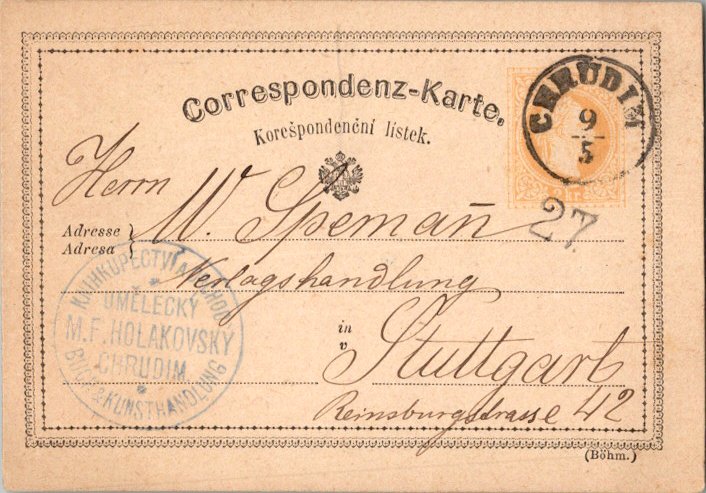 Correspondenz-Karte.
Korešpondenční lístek.
CHRUDIM
9
5
27
Herrn
Adresse
Adresa
W. Spemañ
Verlagshandlung
in
v
Stuttgart
Reinsburgstrasse 42
KNIHKUPECTVÍ A OBCHOD
UMĚLECKÝ
M.F. HOLAKOVSKÝ
CHRUDIM
BUCH & KUNSTHANDLUNG
(Böhm.)